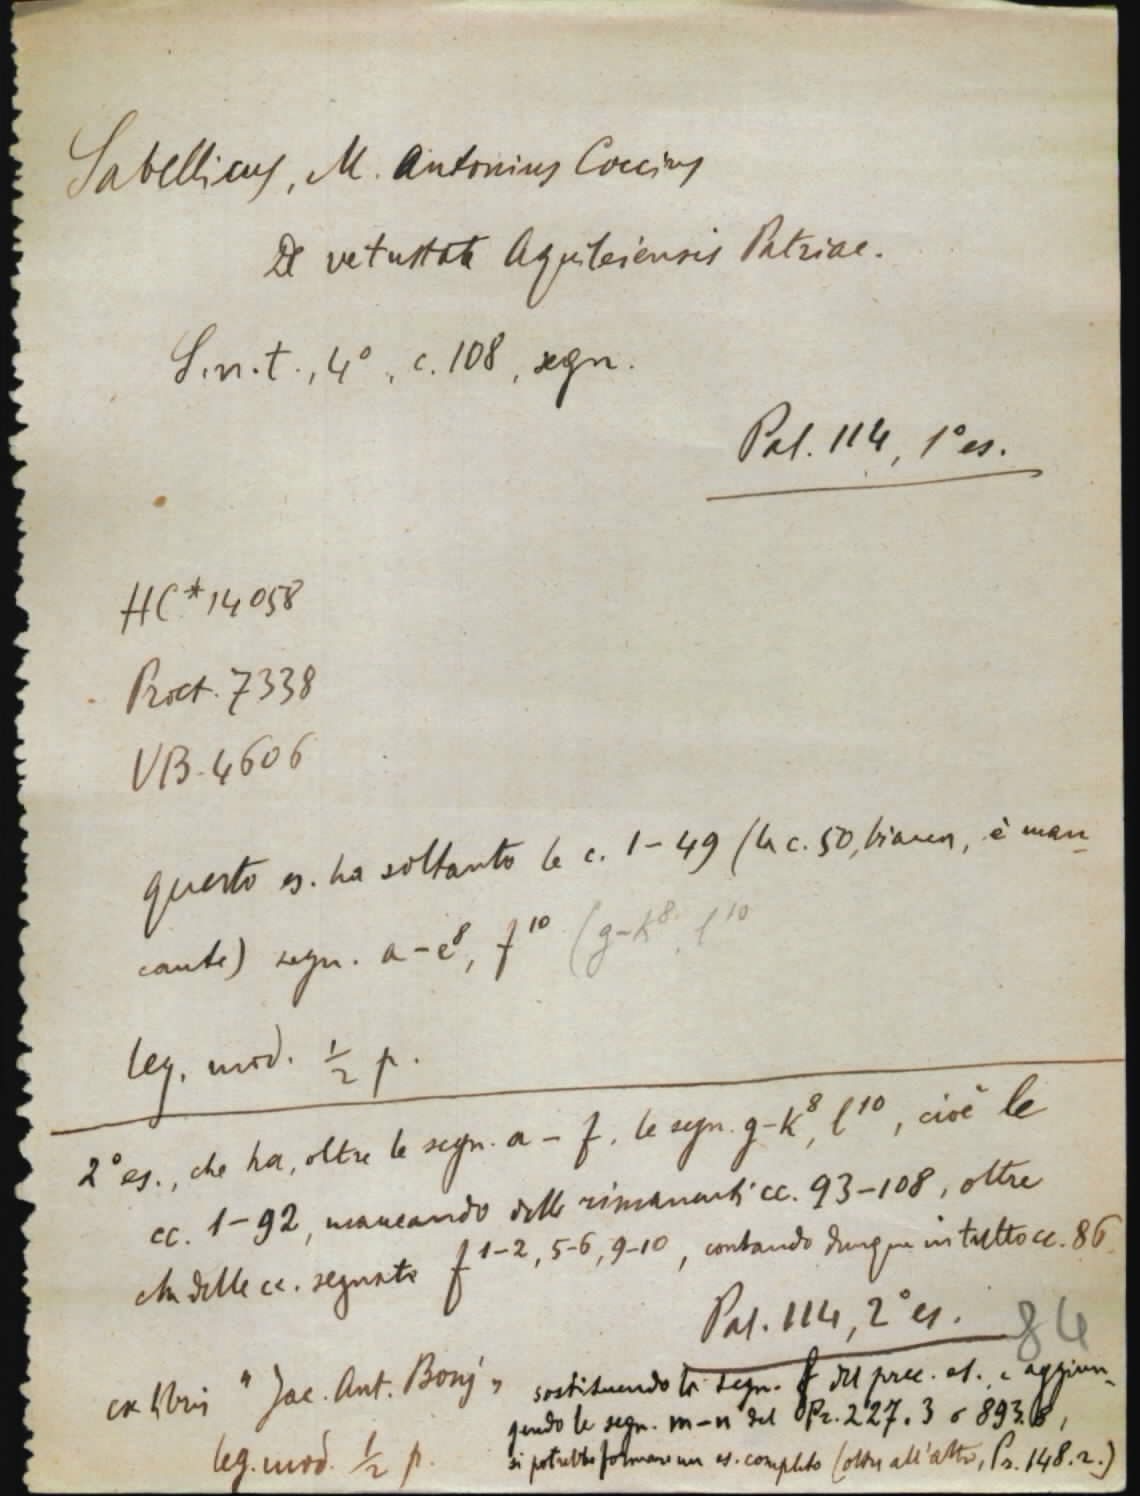 Sabellicus, M. Antonius Coccius
De vetustate Aquileiensis Patriae.
S.n.t., 4°, c. 108, segn.
Pal. 114, 1° es.
HC*14058
Proct. 7338
VB. 4606
questo es. ha soltanto le c. 1-49 (la c. 50, bianca, è man-
cante) segn. a-e⁸, f¹⁰ (g-k⁸, l¹⁰
leg. mod. ½ p.
2° es., che ha, oltre le segn. a-f, le segn. g-k⁸, l¹⁰, cioè le
cc. 1-92, mancando delle rimanenti cc. 93-108, oltre
che delle cc. segnate f 1-2, 5-6, 9-10, contando dunque in tutto cc. 86
Pal. 114, 2° es. 84
ex libris "Jac. Ant. Bonj"
leg. mod. ½ p.
sostituendo la segn. f del prec. es. e aggiun-
gendo le segn. m-n del Pr. 227.3 o 893.8,
si potrebbe formare un es. completo (oltre all'altro, Pr. 148.2.)